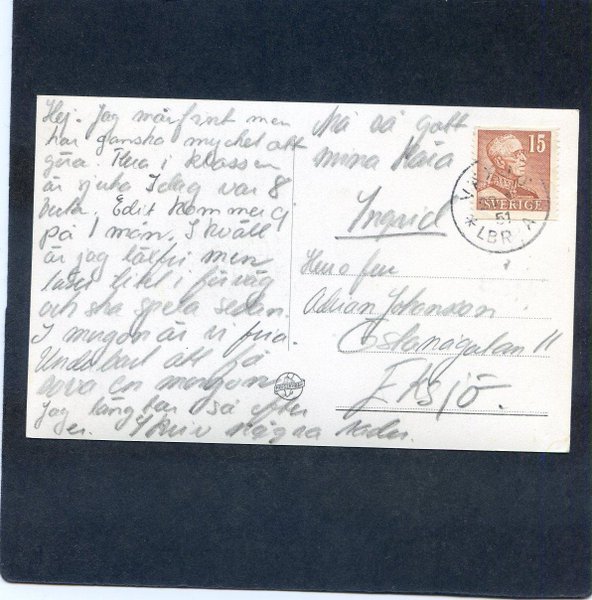 Hej. Jag mår fint men
har ganska mycket att
göra. Flera i klassen
är sjuka Idag var 8
borta. Edit kommer ej
på 1 mån. I kväll
är jag men
läser litet i förväg
och ska spela sedan.
I morgon är vi fria.
Underbart att få
sova en morgon
Jag längtar så efter
er. Skriv några rader.
Må så gott
mina Kära
Ingrid
Herr o fru
Adrian Johansson
Östanågatan 11
Eksjö.
15
SVERIGE
51
* LBR A